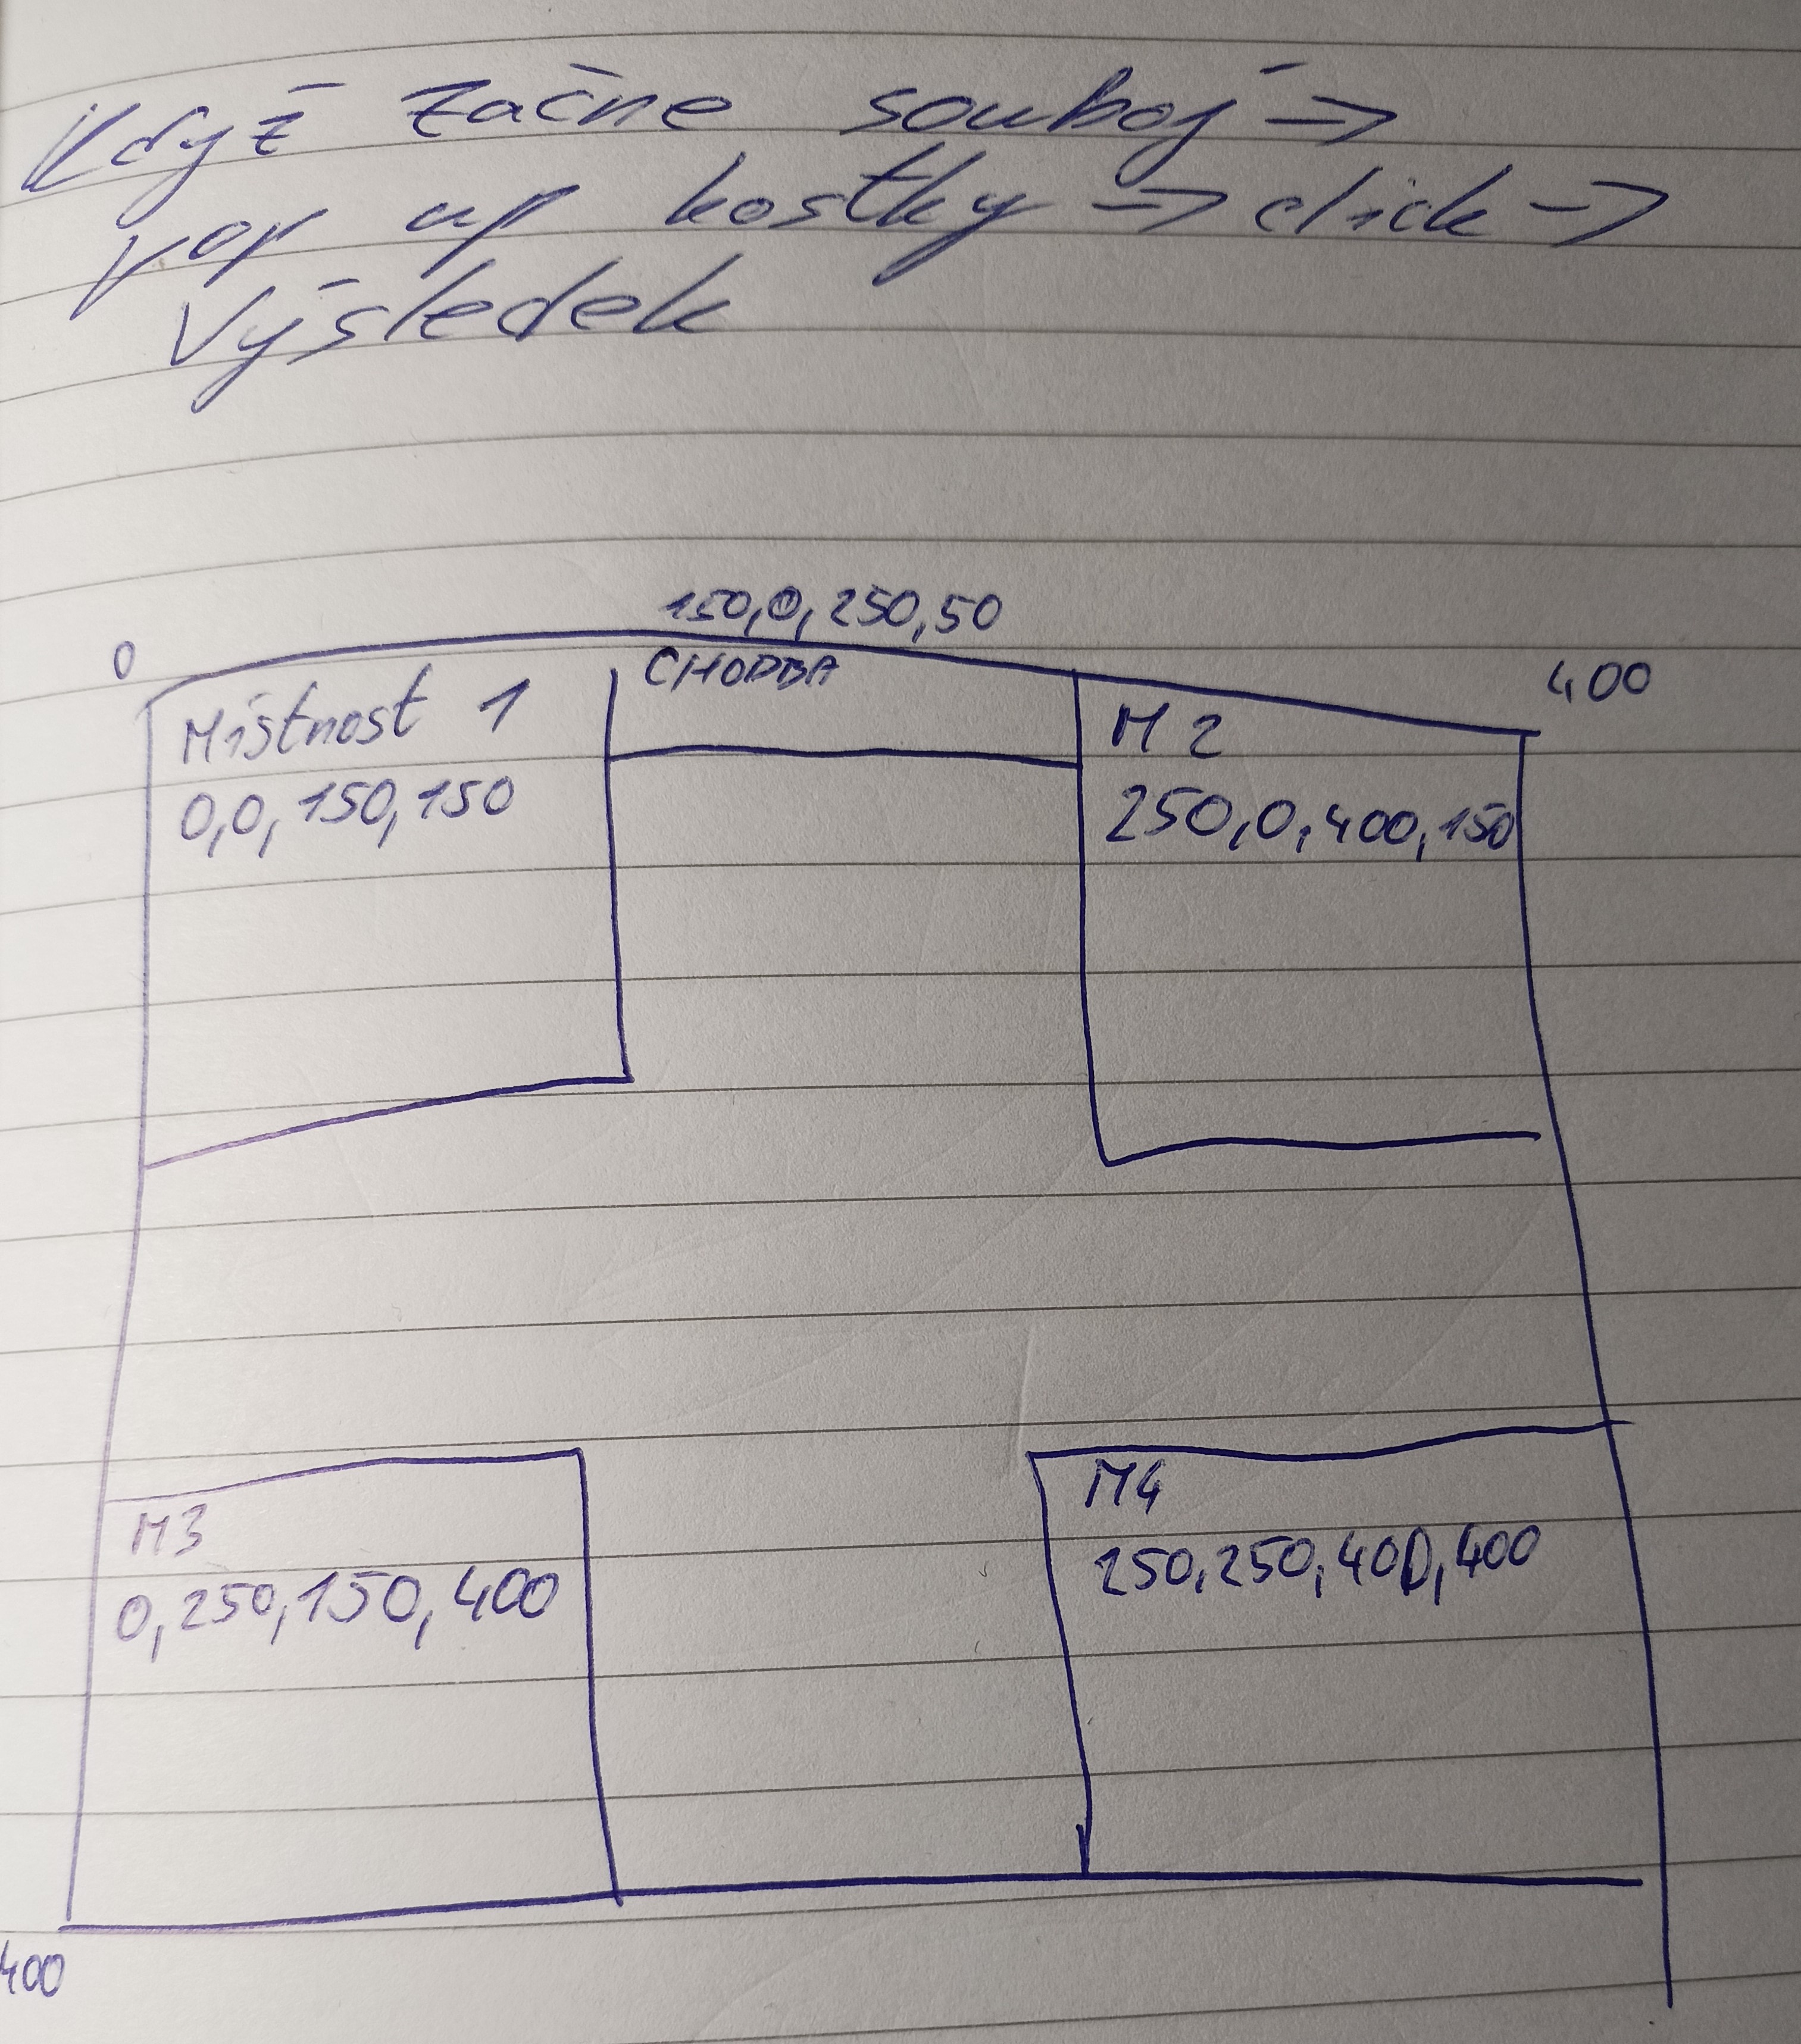 Když začne souboj →
pop up kostky → click →
Výsledek
150,0,250,50
0
CHODBA
400
Místnost 1
0,0,150,150
M2
250,0,400,150
M3
0,250,150,400
M4
250,250,400,400
400